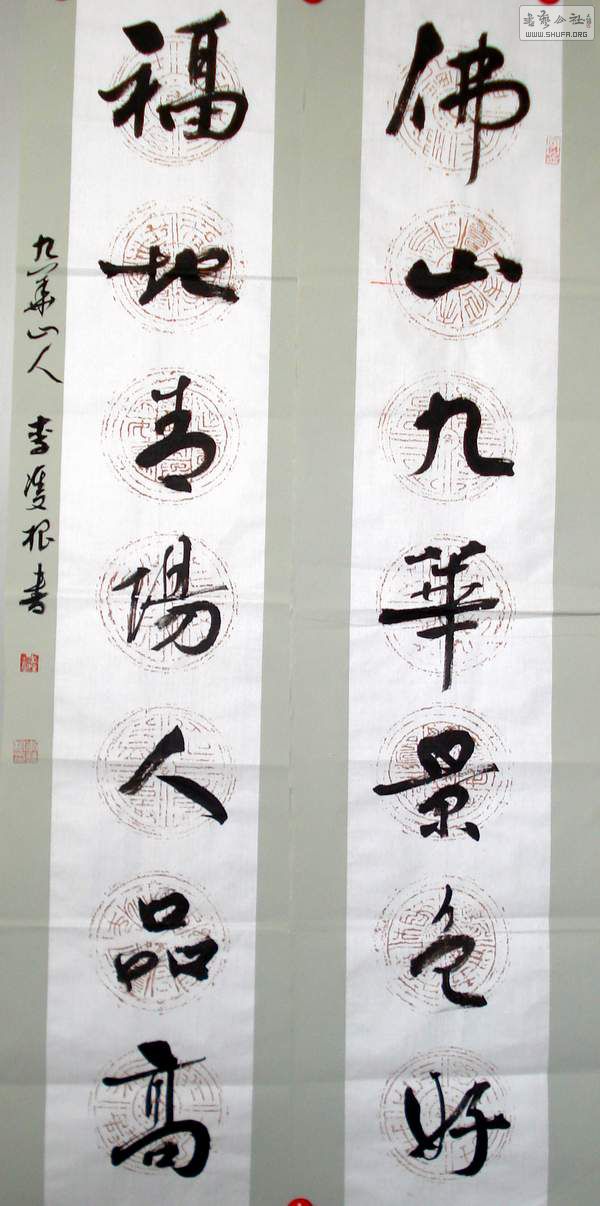 佛山九華景色好
福地青陽人品高
九華山人 李雙根書
書藝公社
WWW.SHUFA.ORG